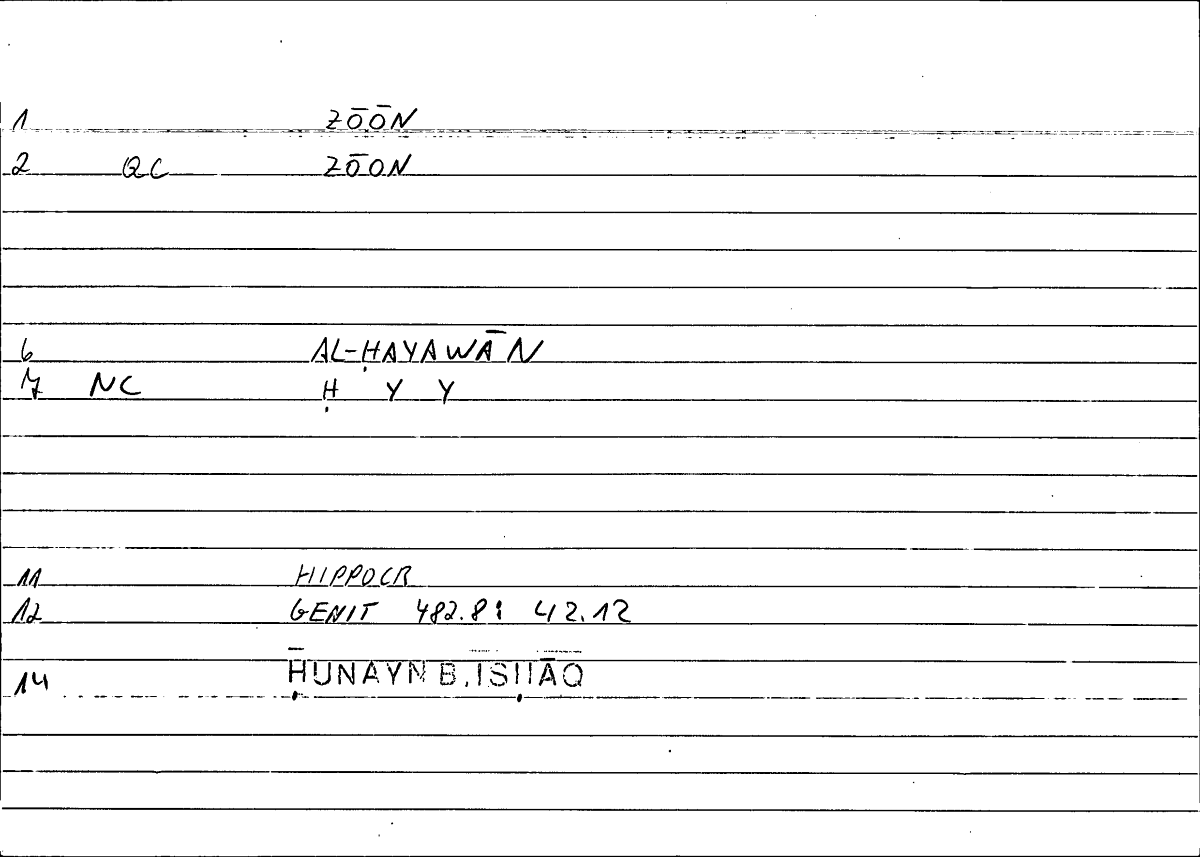 1 ZŌŌN
2 QC ZŌON
6 AL-ḤAYAWĀN
7 NC Ḥ Y Y
11 HIPPOCR
12 GENIT 482.8: 42.12
14 ḤUNAYN B. ISḤĀQ